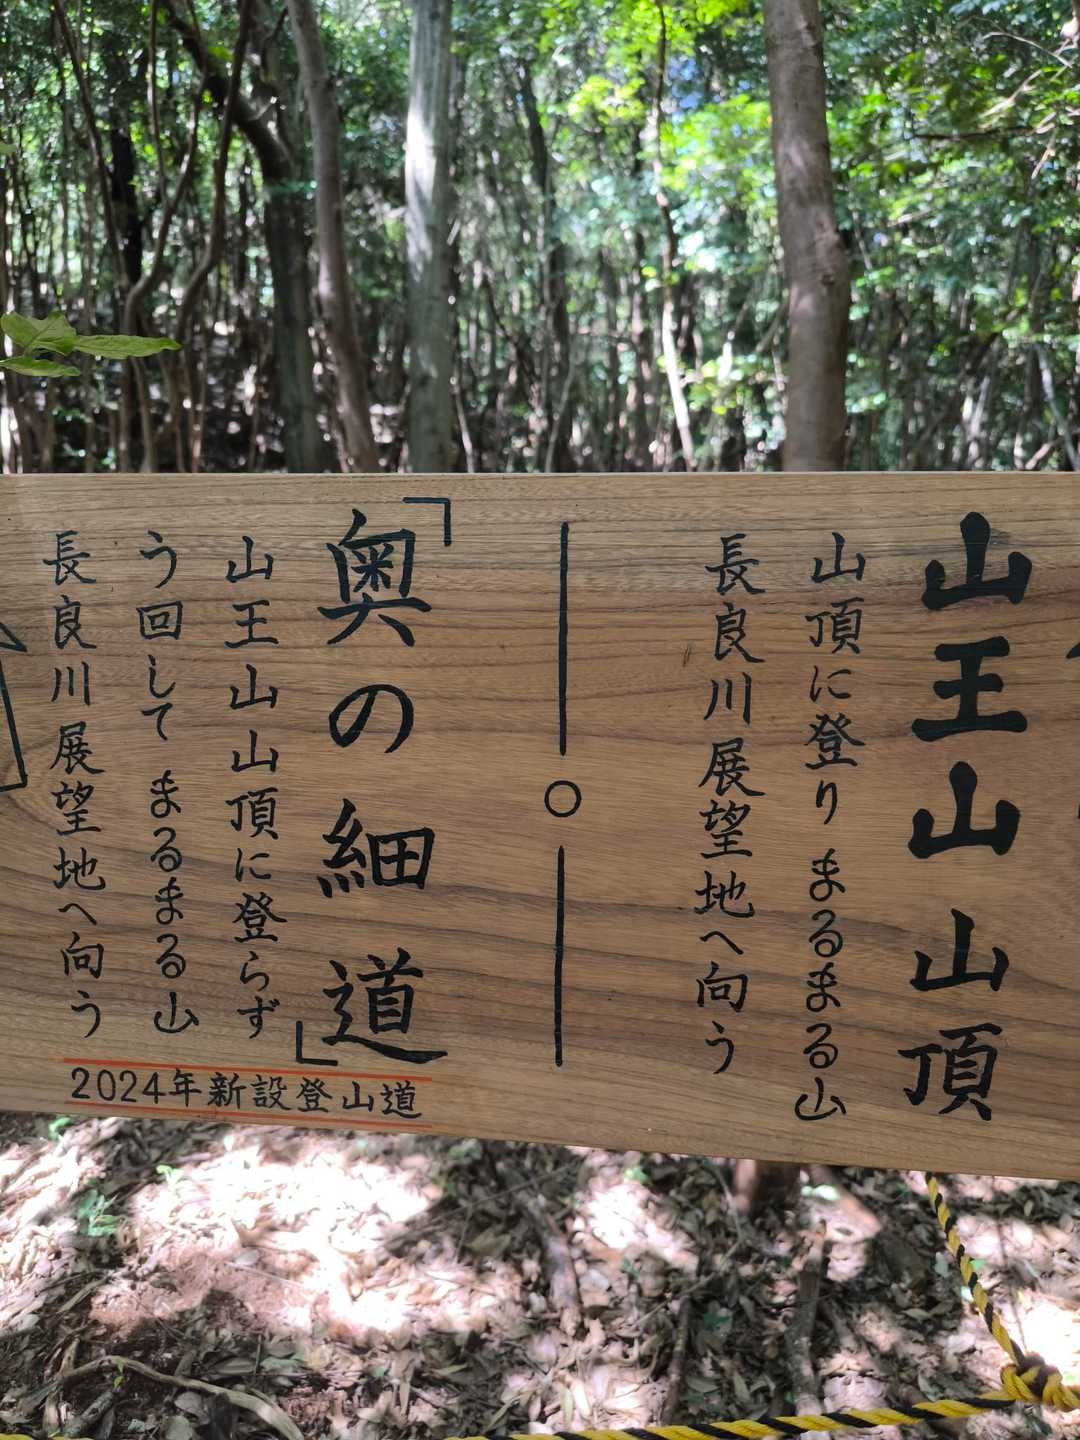 山王山山頂
山頂に登り まるまる山
長良川展望地へ向う
「奥の細道」
山王山山頂に登らず
う回して まるまる山
長良川展望地へ向う
2024年新設登山道